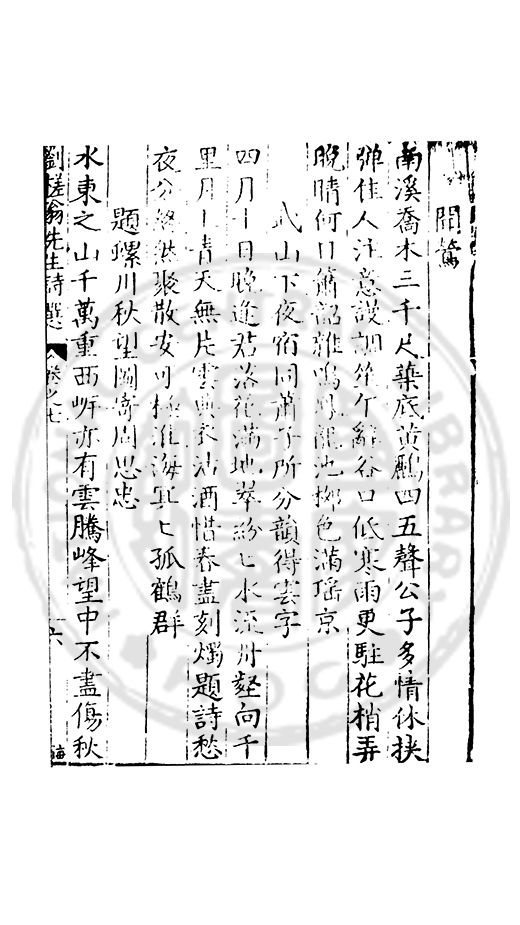 聞鶯
南溪喬木三千尺葉底黃鸝四五聲公子多情休挾
彈佳人注意謾調笙 辭谷口低寒雨更駐花梢弄
晚晴何日簫韶雜鳴鳳龍池柳色滿瑶京
武山下夜宿同蕭子所分韻得雲字
四月十日晚逢君落花滿地翠紛匕水流 壑向千
里月上青天無片雲 家沽酒惜春盡刻燭題詩愁
夜分 聚散安可 淮海冥匕孤鶴群
題螺川秋望圖寄周思忠
水東之山千萬重西岍亦有雲騰峰望中不盡傷秋
劉槎翁先生詩選
卷之七
六
海